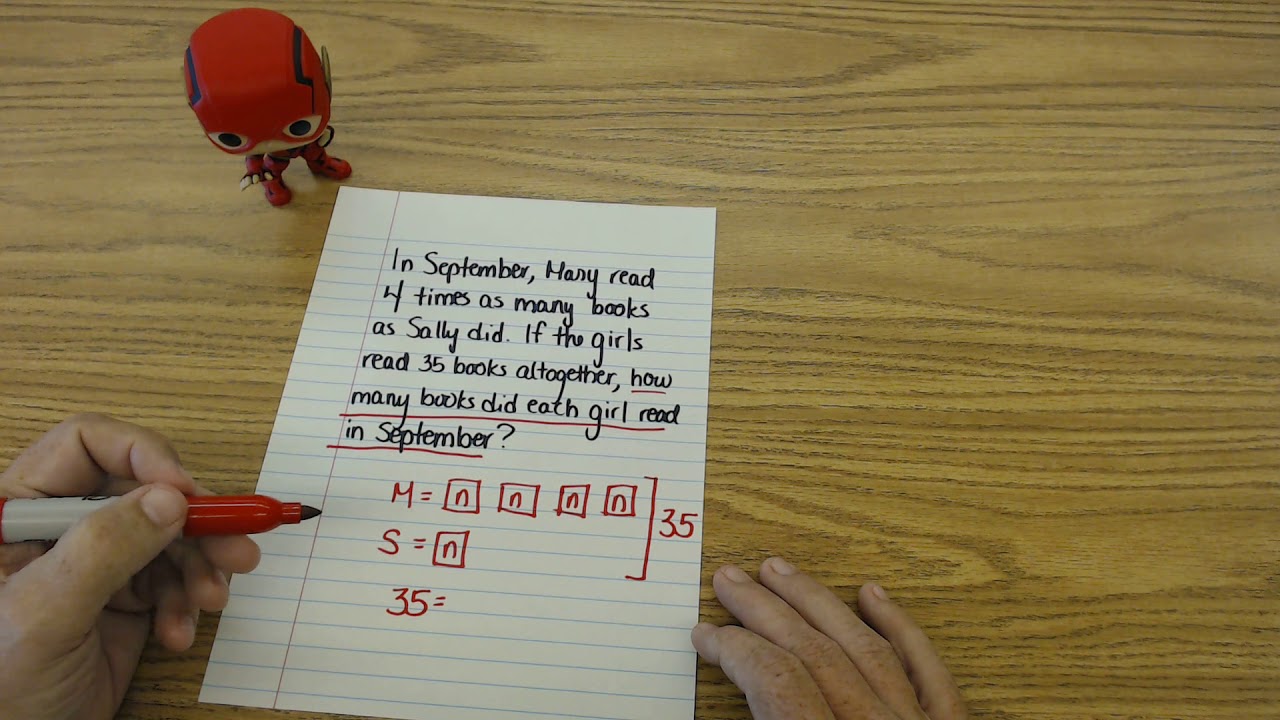 In September, Mary read
4 times as many books
as Sally did. If the girls
read 35 books altogether, how
many books did each girl read
in September?
M = n n n n
35
S = n
35=